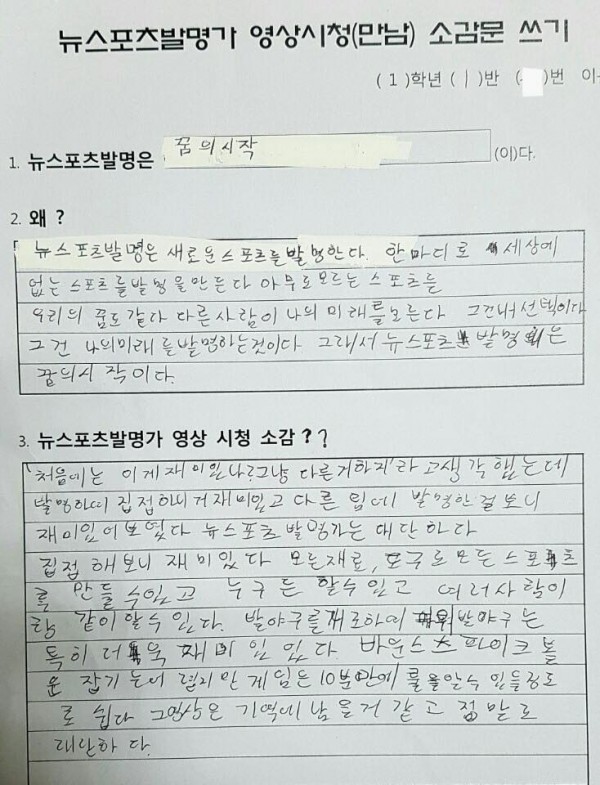 뉴스포츠발명가 영상시청(만남) 소감문 쓰기
( 1 )학년 ( 1 )반 ( )번 이
1. 뉴스포츠발명은 꿈의시작 (이)다.
2. 왜 ?
뉴스포츠발명은 새로운스포츠를발명한다. 한마디로 세상에
없는 스포츠를발명을만든다 아무도모르는 스포츠를
우리의 꿈도같다 다른사람이 나의 미래를모른다 그건내선택이다
그건 나의미래를발명하는것이다 그래서 뉴스포츠발명은
꿈의시작이다.
3. 뉴스포츠발명가 영상 시청 소감 ? ?
'처음에는 이게재미있나?그냥 다른거하지'라고생각했는데
발명하며 집접하니거재미있고 다른 팀에 발명한걸보니
재미있어보였다 뉴스포츠발명가는 대단하다
집접 해보니 재미있다 모든재료, 도구로모든스포츠
를 만들수있고 누구든 할수있고 여러사람이
같이할수있다. 발야구는
특히 더욱 재미있다 바운스 파이크볼
은 잡기는어렵지만 게임은 10분만에 룰을알수있을정도
로 쉽다 그영상은 기억에남을거 같고 정말로
대단하다.